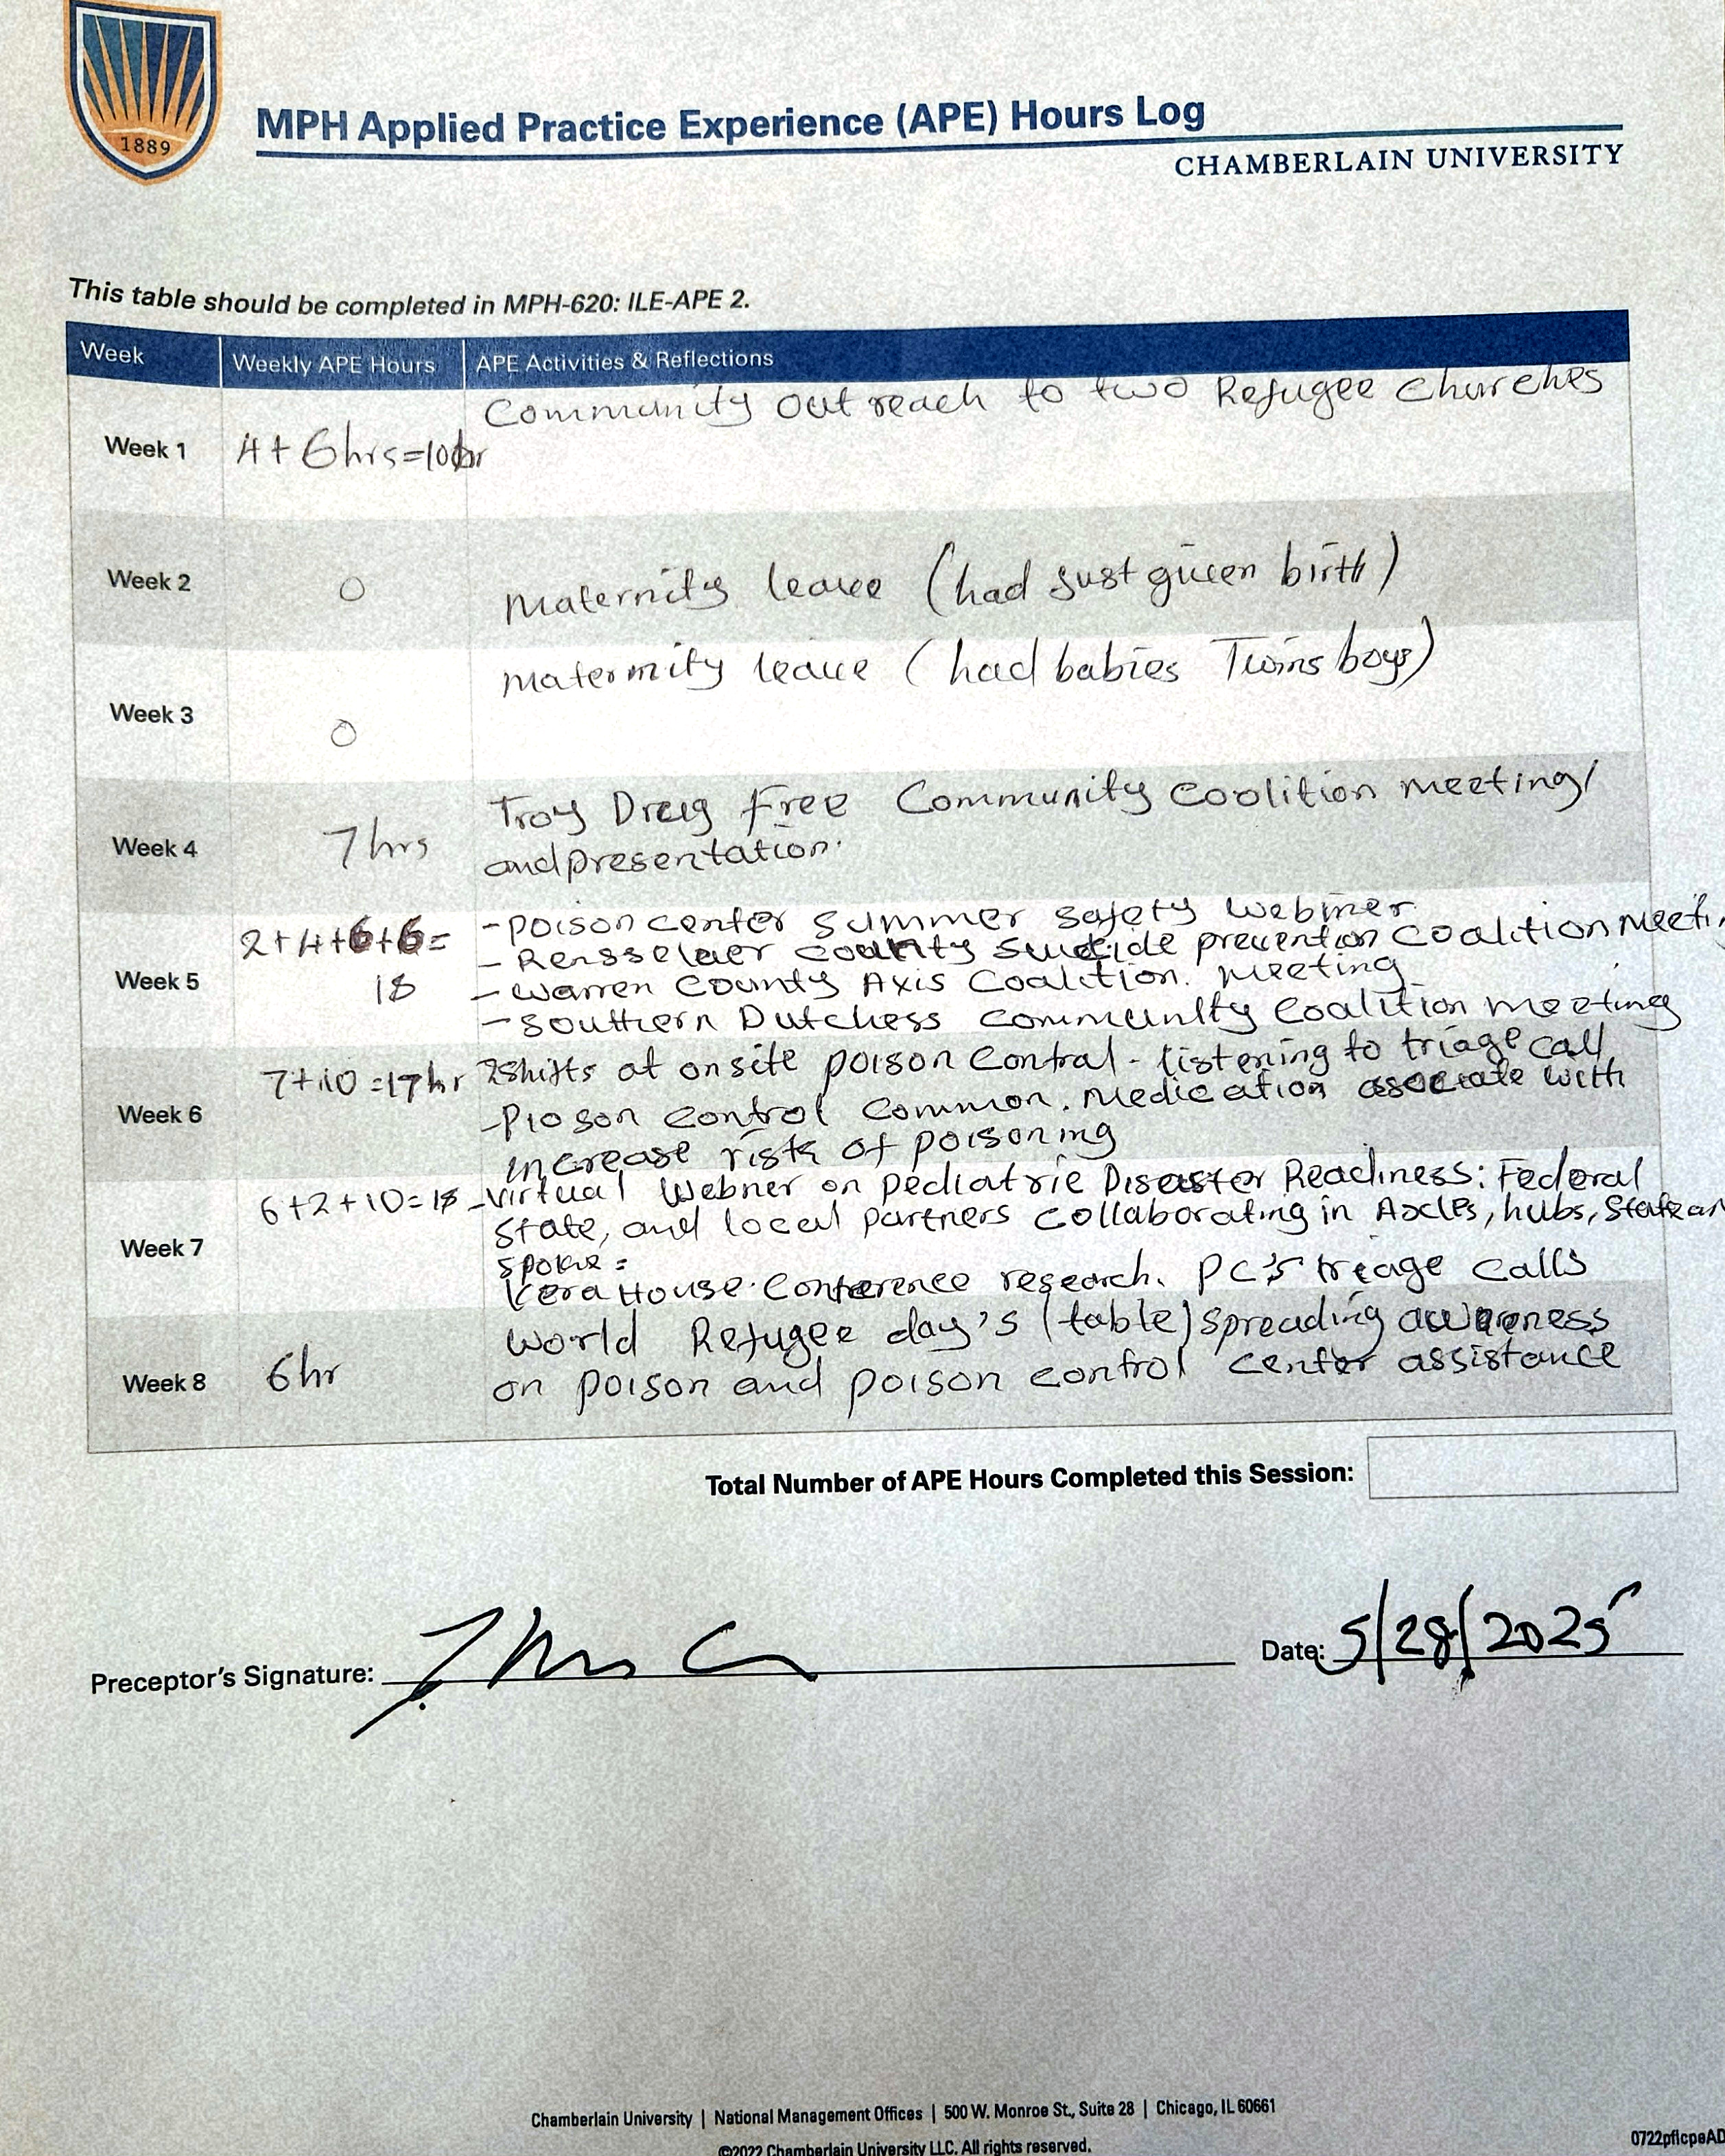 1889
MPH Applied Practice Experience (APE) Hours Log
CHAMBERLAIN UNIVERSITY
This table should be completed in MPH-620: ILE-APE 2.
Week Weekly APE Hours APE Activities & Reflections
Week 1 4+6hrs=10hr Community outreach to two Refugee churches
Week 2 0 Maternity leave (had just given birth)
Week 3 0 Maternity leave (had babies Twins boys)
Week 4 7hrs Troy Drug Free Community Coolition meeting/
and presentation.
Week 5 2+4+6+6= - poison center summer safety webiner
18 - Rensselaer county suicide prevention Coalition Meeti
- Warren County Axis Coalition. Meeting
- Southern Dutchess community Coalition meeting
Week 6 7+10=17hr 2shifts at onsite poison control - listening to triage call,
- Pioson control common. Medication associate with
increase risk of poisoning
Week 7 6+2+10=18 - Virtual Webner on pediatric Disaster Readiness: Federal
state, and local partners collaborating in Axcles, hubs, State an
spoke =
Vera House Conference research. PC's triage calls
Week 8 6hr World Refugee day's (table) spreading awareness
on poison and poison control center assistance
Total Number of APE Hours Completed this Session:
Preceptor's Signature: Date: 5/28/2025
Chamberlain University | National Management Offices | 500 W. Monroe St., Suite 28 | Chicago, IL 60661
©2022 Chamberlain University LLC. All rights reserved.
0722pflcpeAD